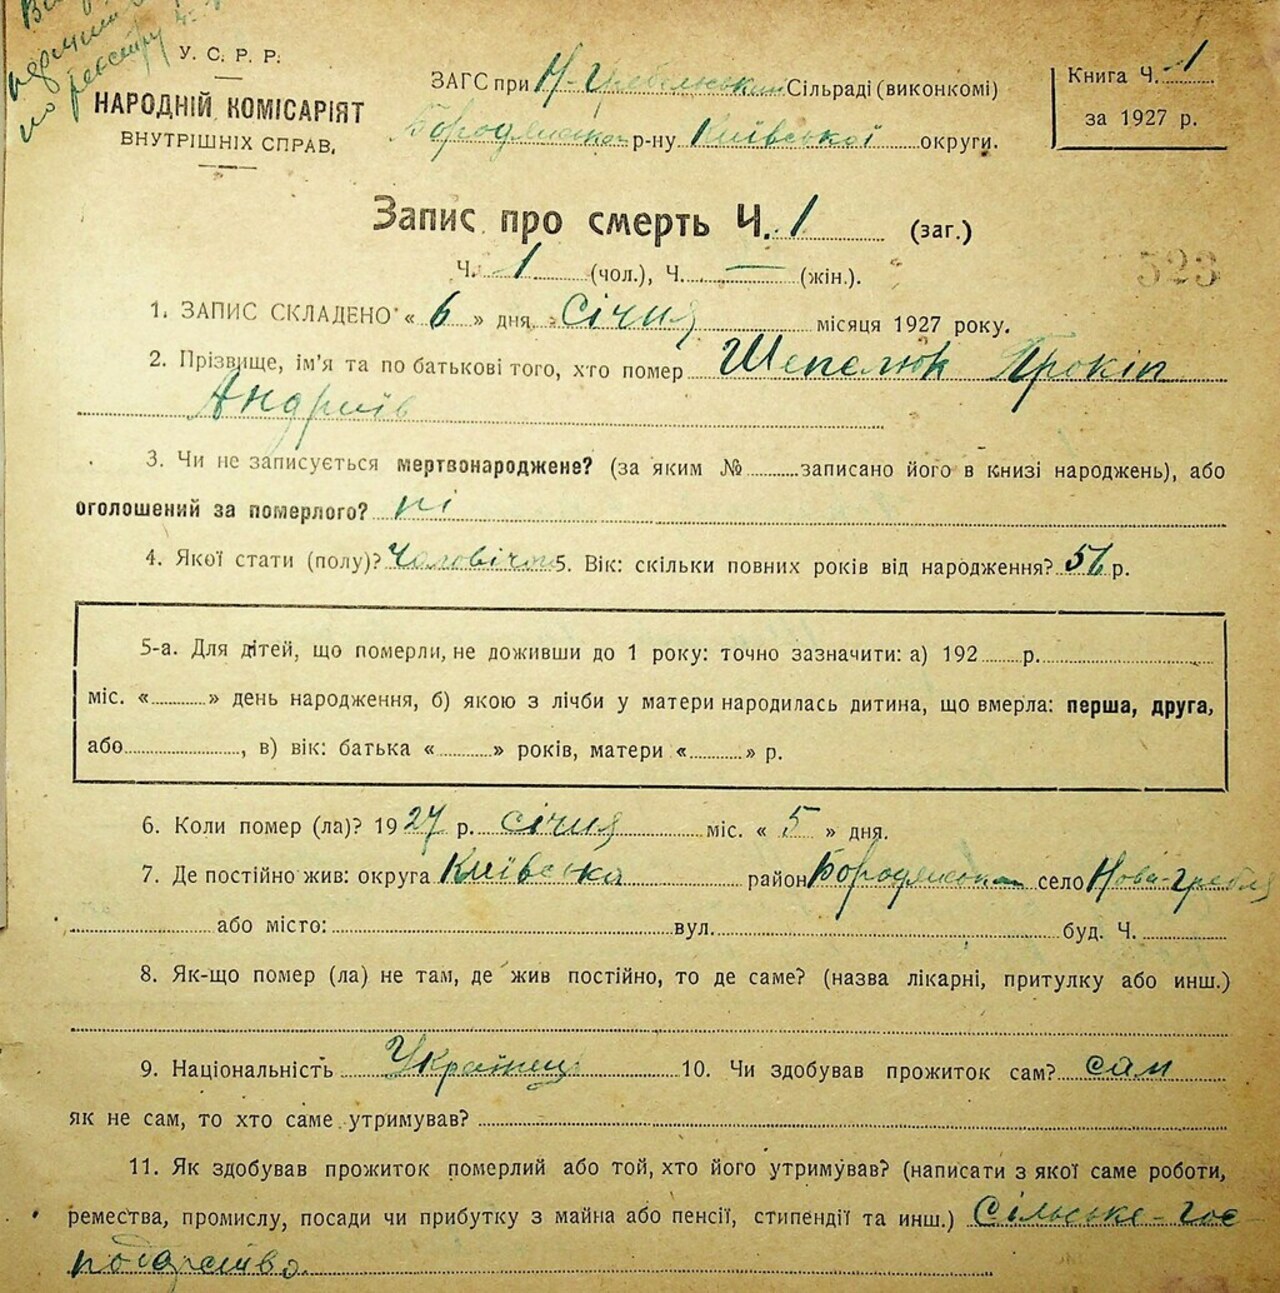 У. С. Р. Р.
НАРОДНІЙ КОМІСАРІЯТ
ВНУТРІШНІХ СПРАВ.
по реєстру
ЗАГС при Н-Гребельським Сільраді (виконкомі)
Бородянськ р-ну Київської округи.
Книга Ч. 1
за 1927 р.
Запис про смерть Ч. 1 (заг.)
Ч. 1 (чол.), Ч. — (жін.).
523
1. ЗАПИС СКЛАДЕНО « 6 » дня Січня місяця 1927 року.
2. Прізвище, ім'я та по батькові того, хто помер Шепелюк Прокіп
Андріїв
3. Чи не записується мертвонароджене? (за яким № записано його в книзі народжень), або
оголошений за померлого? ні
4. Якої стати (полу)? Чоловічої 5. Вік: скільки повних років від народження? 56 р.
5-а. Для дітей, що померли, не доживши до 1 року: точно зазначити: а) 192 р.
міс. « » день народження, б) якою з лічби у матери народилась дитина, що вмерла: перша, друга,
або , в) вік: батька « » років, матери « » р.
6. Коли помер (ла)? 1927 р. січня міс. « 5 » дня.
7. Де постійно жив: округа Київська район Бородянськ село Нова-Гребля
або місто: вул. буд. Ч.
8. Як-що помер (ла) не там, де жив постійно, то де саме? (назва лікарні, притулку або инш.)
9. Національність Українець 10. Чи здобував прожиток сам? сам
як не сам, то хто саме утримував?
11. Як здобував прожиток померлий або той, хто його утримував? (написати з якої саме роботи,
ремества, промислу, посади чи прибутку з майна або пенсії, стипендії та инш.) Сільське-гос
подарство